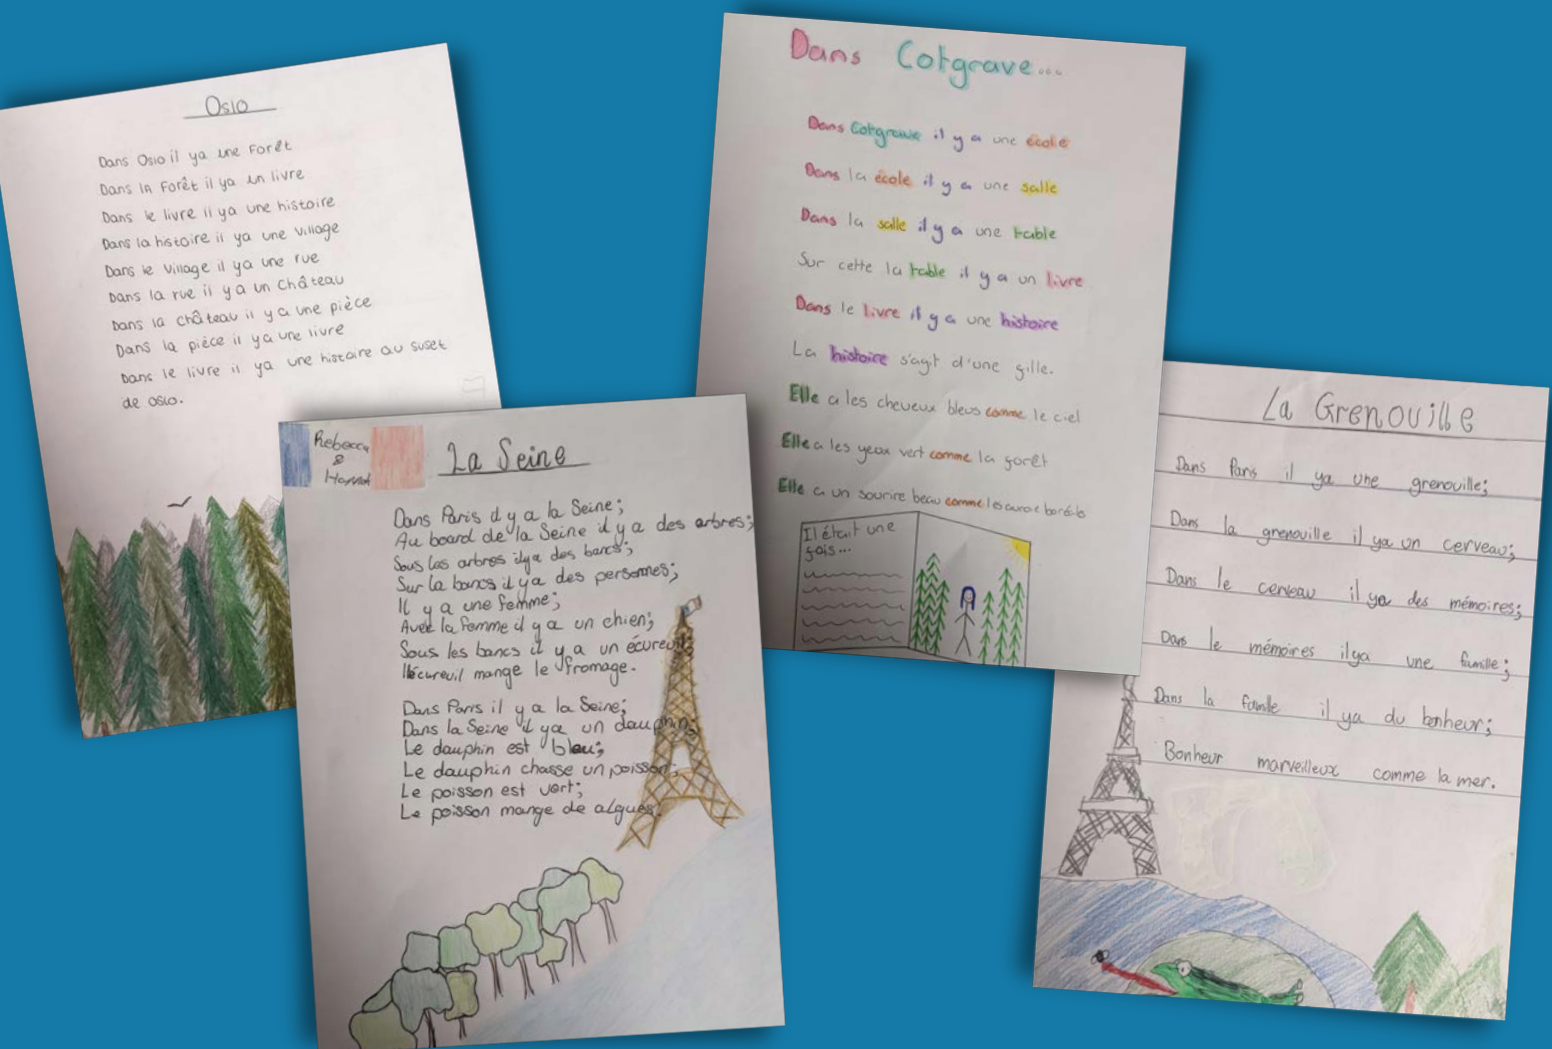 Oslo
Dans Oslo il ya une Forêt
Dans la Forêt il ya un livre
Dans le livre il ya une histoire
Dans la histoire il ya une village
Dans le village il ya une rue
Dans la rue il ya un château
Dans la château il ya une pièce
Dans la pièce il ya une livre
Dans le livre il ya une histoire au suset
de oslo.
Rebecca
&
La Seine
Dans Paris il y a la Seine;
Au board de la Seine il y a des arbres;
Sous les arbres il ya des bancs;
Sur la bancs il ya des personnes;
Il y a une femme;
Avec la femme il y a un chien;
Sous les bancs il y a un écureuil;
l'écureuil mange le fromage.
Dans Paris il y a la Seine;
Dans la Seine il ya un dauphin;
Le dauphin est bleu;
Le dauphin chasse un poisson;
Le poisson est vert;
Le poisson mange de algues.
Dans Cotgrave...
Dans Cotgrave il y a une école
Dans la école il y a une salle
Dans la salle il y a une table
Sur cette la table il y a un livre
Dans le livre il y a une histoire
La histoire s'agit d'une fille.
Elle a les cheveux bleus comme le ciel
Elle a les yeux vert comme la forêt
Elle a un sourire beau comme les aurore boréale
Il était une
fois...
La Grenouille
Dans Paris il ya une grenouille;
Dans la grenouille il ya un cerveau;
Dans le cerveau il ya des mémoires;
Dans le mémoires il ya une famille;
Dans la famille il ya du bonheur;
Bonheur marveilleux comme la mer.